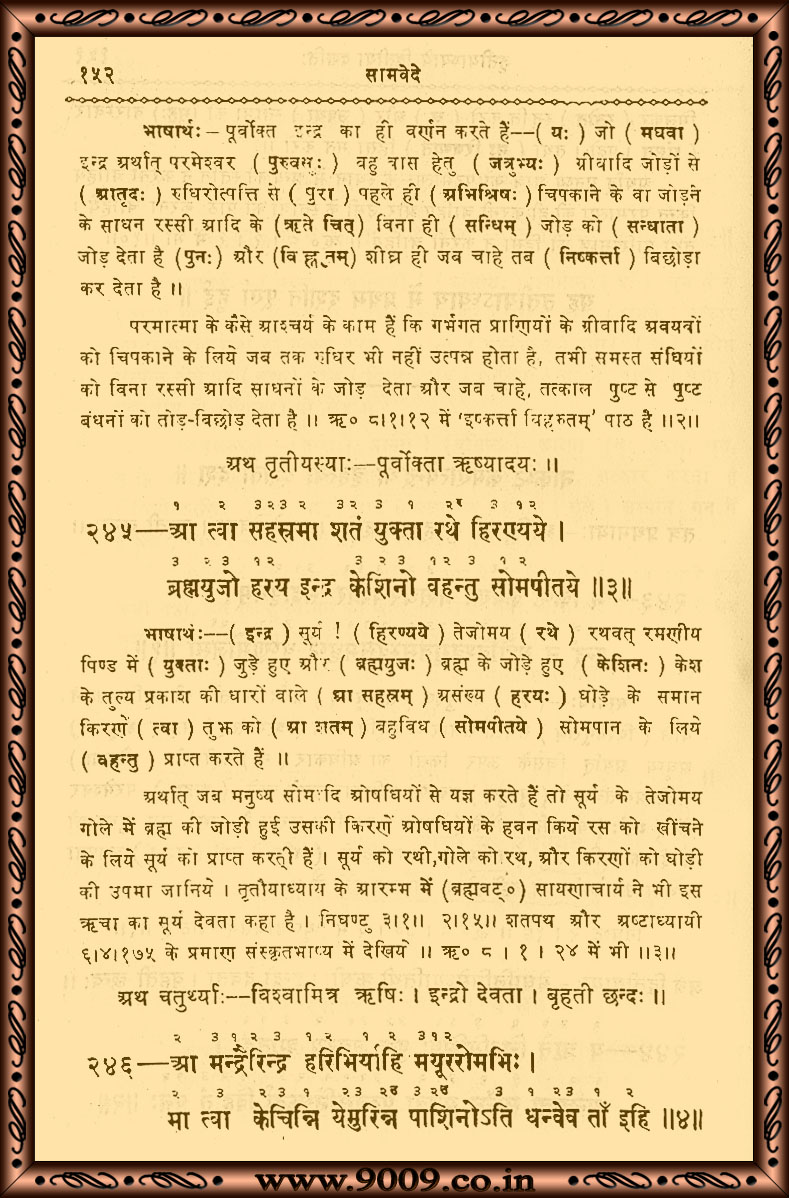 १५२ सामवेदे
भाषार्थः – पूर्वोक्त इन्द्र का ही वर्णन करते हैं––( यः ) जो ( मघवा )
इन्द्र अर्थात् परमेश्वर ( पुरुवसुः ) बहु वास हेतु ( जत्रुभ्यः ) ग्रीवादि जोड़ों से
( आतृदः ) रुधिरोत्पत्ति से ( पुरा ) पहले ही ( अभिश्रिषः ) चिपकाने के वा जोड़ने
के साधन रस्सी आदि के (ऋते चित्) बिना ही ( सन्धिम् ) जोड़ को ( सन्धाता )
जोड़ देता है (पुनः) और शीघ्र ही जब चाहे तब ( निष्कर्त्ता ) बिछोड़ा
कर देता है ॥
परमात्मा के कैसे आश्चर्य के काम हैं कि गर्भगत प्राणियों के ग्रीवादि अवयवों
को चिपकाने के लिये जब तक रुधिर भी नहीं उत्पन्न होता है, तभी समस्त संधियों
को बिना रस्सी आदि साधनों के जोड़ देता और जब चाहे, तत्काल पुष्ट से पुष्ट
बंधनों को तोड़-बिछोड़ देता है ॥ ऋ० ८।१।१२ में ‘इष्कर्त्ता विह्रुतम्’ पाठ है ॥२॥
अथ तृतीयस्याः––पूर्वोक्ता ऋष्यादयः ॥
१ २ ३२३ २ ३२ ३ १ २र ३ १२
२४५ – आ त्वा सहस्रमा शतं युक्ता रथे हिरण्यये ।
३ २३ १२ ३ २३ १२ ३ १ २
ब्रह्मयुजो हरय इन्द्र केशिनो वहन्तु सोमपीतये ॥३॥
भाषार्थः––( इन्द्र ) सूर्य ! ( हिरण्यये ) तेजोमय ( रथे ) रथवत् रमणीय
पिण्ड में ( युक्ताः ) जुड़े हुए और ( ब्रह्मयुजः ) ब्रह्म के जोड़े हुए ( केशिनः ) केश
के तुल्य प्रकाश की धारों वाले ( आ सहस्रम् ) असंख्य ( हरयः ) घोड़े के समान
किरणें ( त्वा ) तुझ को ( आ शतम् ) बहुविध ( सोमपीतये ) सोमपान के लिये
( वहन्तु ) प्राप्त करते हैं ॥
अर्थात् जब मनुष्य सोमादि ओषधियों से यज्ञ करते हैं तो सूर्य के तेजोमय
गोले में ब्रह्म की जोड़ी हुई उसकी किरणें ओषधियों के हवन किये रस को खींचने
के लिये सूर्य को प्राप्त करती हैं । सूर्य को रथी,गोले को रथ, और किरणों को घोड़ी
की उपमा जानिये । तृतीयाध्याय के आरम्भ में (ब्रह्मवट्०) सायणाचार्य ने भी इस
ऋचा का सूर्य देवता कहा है । निघण्टु ३।१॥ २।१५॥ शतपथ और अष्टाध्यायी
६।४।१७५ के प्रमाण संस्कृतभाष्य में देखिये ॥ ऋ० ८ । १ । २४ में भी ॥३॥
अथ चतुर्थ्याः––विश्वामित्र ऋषिः । इन्द्रो देवता । बृहती छन्दः ॥
२ ३ १ २ ३ १ २ १ २ ३१२
२४६ – आ मन्द्रैरिन्द्र हरिभिर्याहि मयूररोमभिः ।
२ ३ २३ १ २३ २उ ३ २उ ३ १ २३ १ २
मा त्वा केचिन्नि येमुरिन्न पाशिनोऽति धन्वेव ताँ इहि ॥४॥
www.9009.co.in